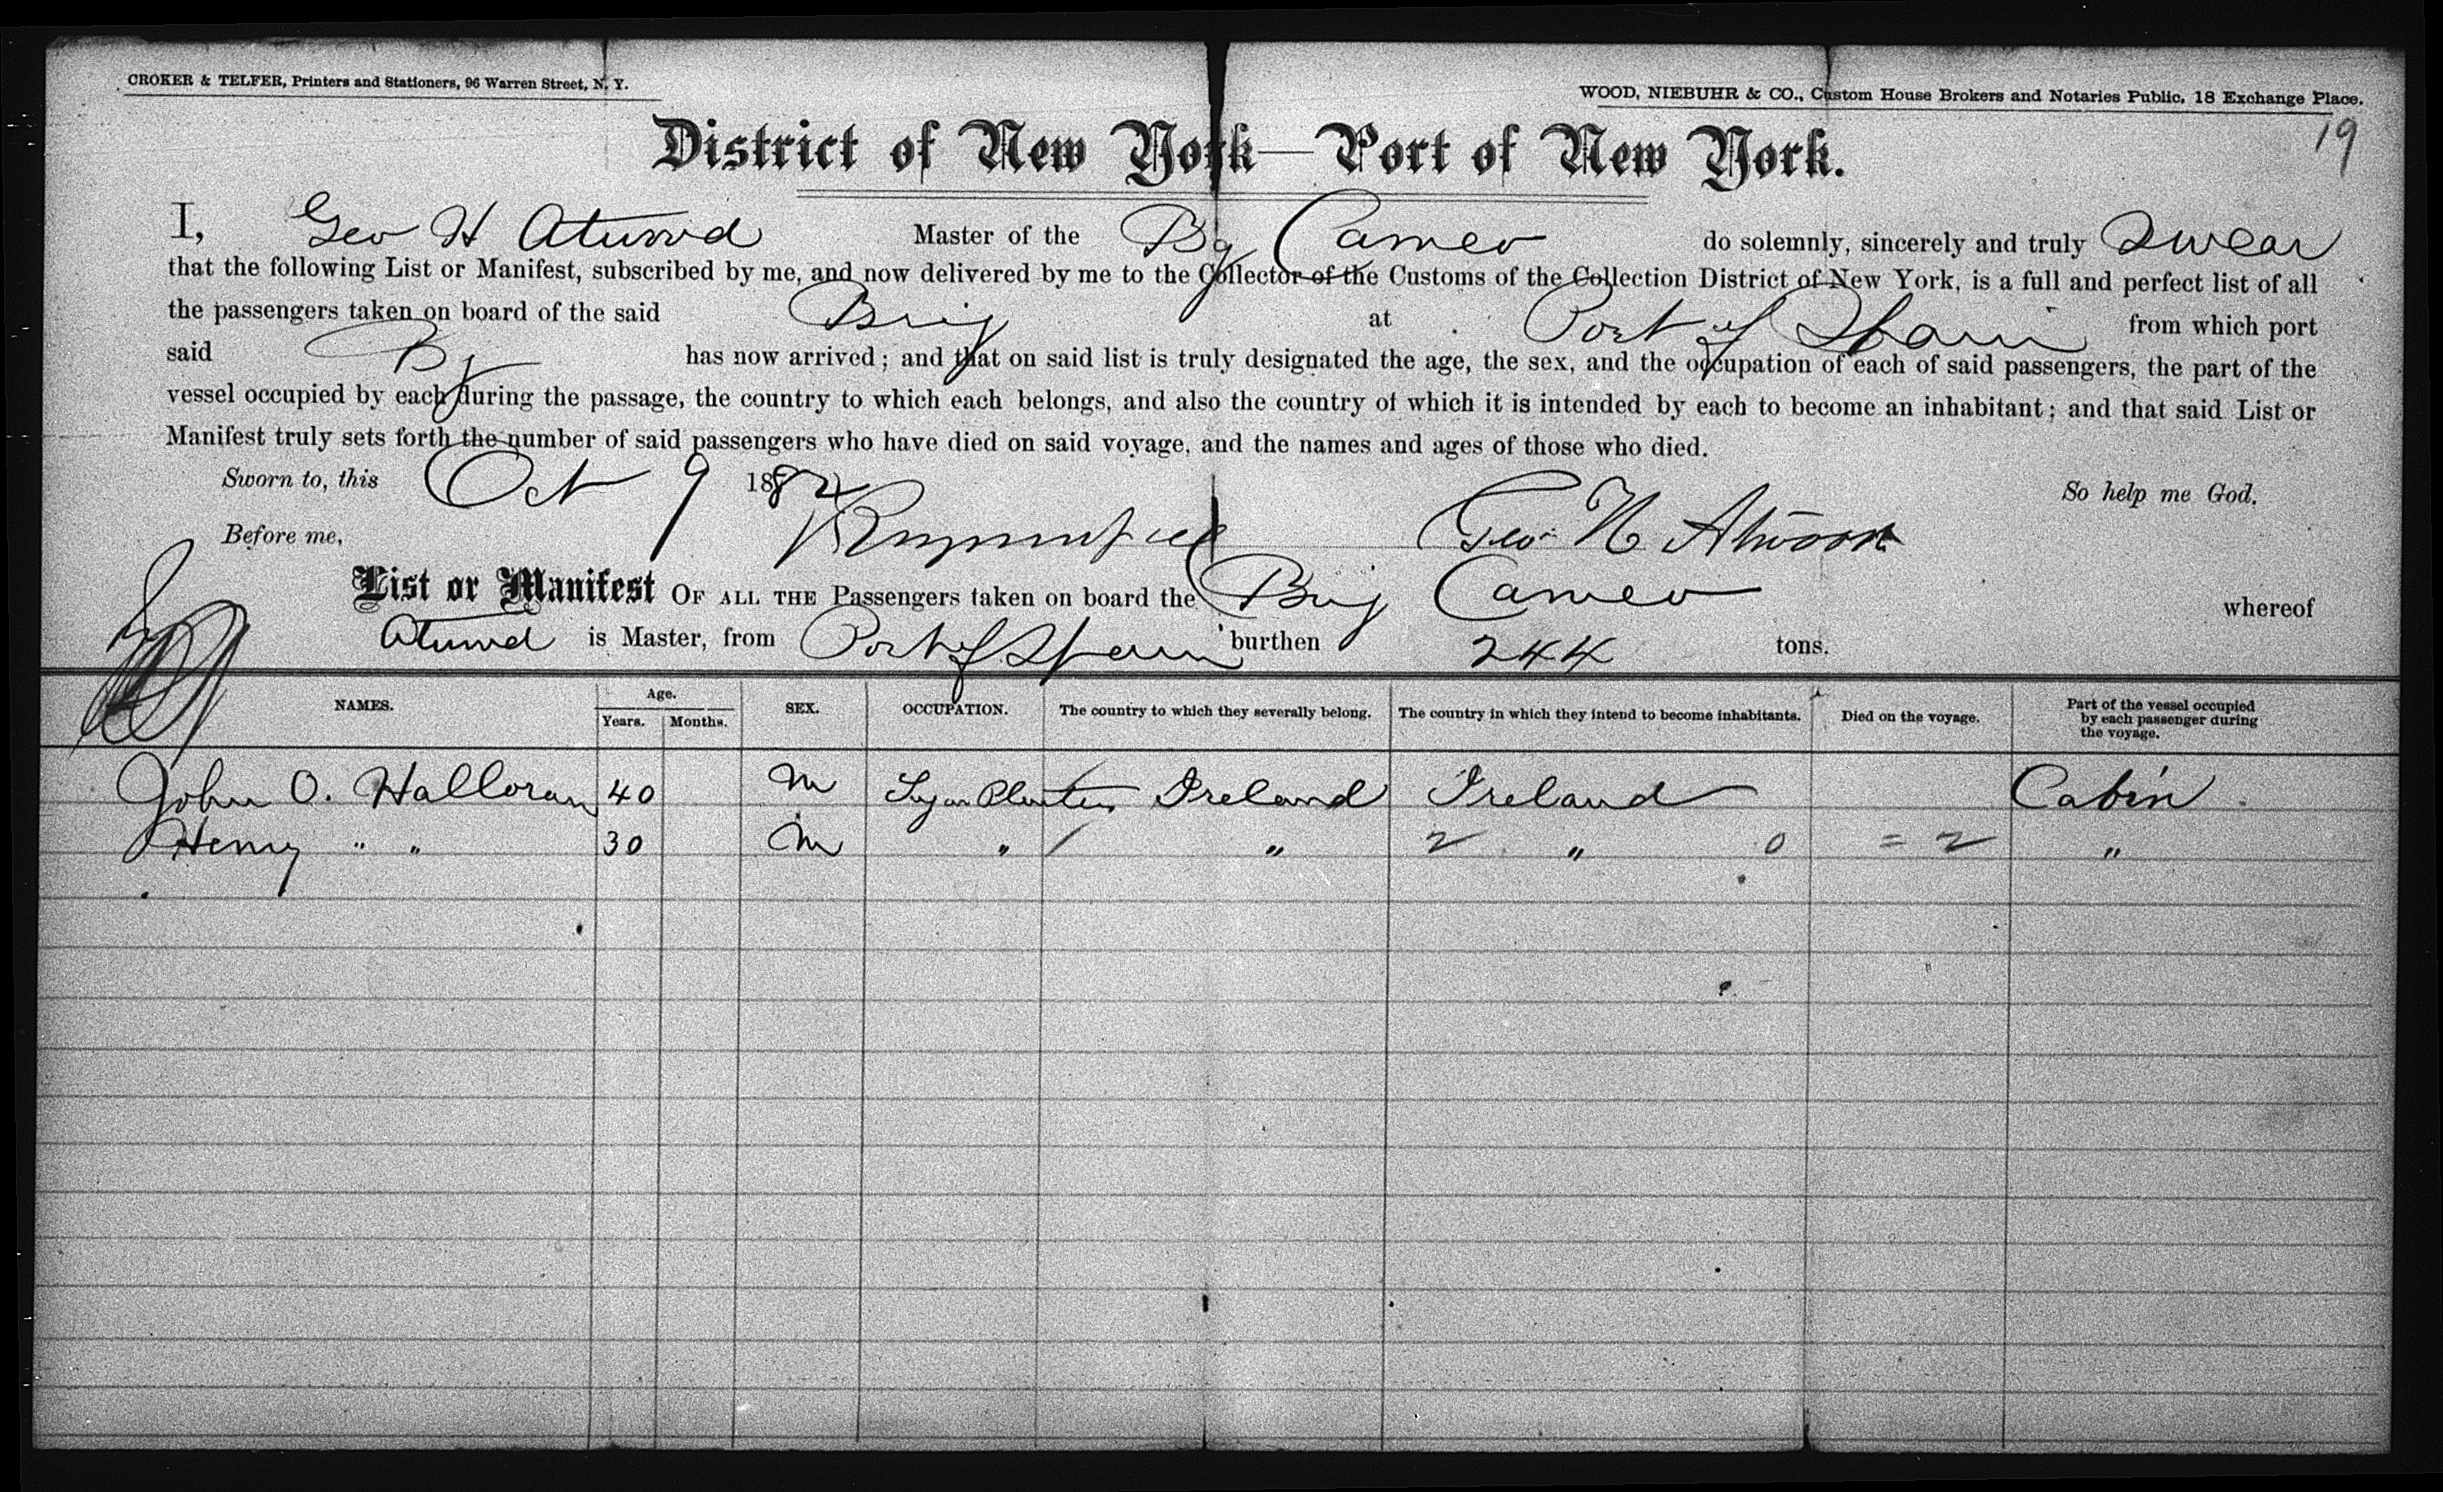 CROKER & TELFER, Printers and Stationers, 96 Warren Street, N. Y.
WOOD, NIEBUHR & CO., Custom House Brokers and Notaries Public, 18 Exchange Place.
19
District of New York—Port of New York.
I, Geo H Atwood Master of the Bg Cameo do solemnly, sincerely and truly Swear
that the following List or Manifest, subscribed by me, and now delivered by me to the Collector of the Customs of the Collection District of New York, is a full and perfect list of all
the passengers taken on board of the said Brig at Port of Spain from which port
said Bg has now arrived; and that on said list is truly designated the age, the sex, and the occupation of each of said passengers, the part of the
vessel occupied by each during the passage, the country to which each belongs, and also the country of which it is intended by each to become an inhabitant; and that said List or
Manifest truly sets forth the number of said passengers who have died on said voyage, and the names and ages of those who died.
Sworn to, this Oct 9 1882 So help me God.
Before me, Geo. H Atwood
List or Manifest OF ALL THE Passengers taken on board the Brig Cameo whereof
Atwood is Master, from Port of Spain burthen 244 tons.
NAMES. Age. Years. Months. SEX. OCCUPATION. The country to which they severally belong. The country in which they intend to become inhabitants. Died on the voyage. Part of the vessel occupied by each passenger during the voyage.
John O. Halloran 40 M Sugar Planter Ireland Ireland Cabin
Henry " " 30 M " / " 2 " 0 = 2 "